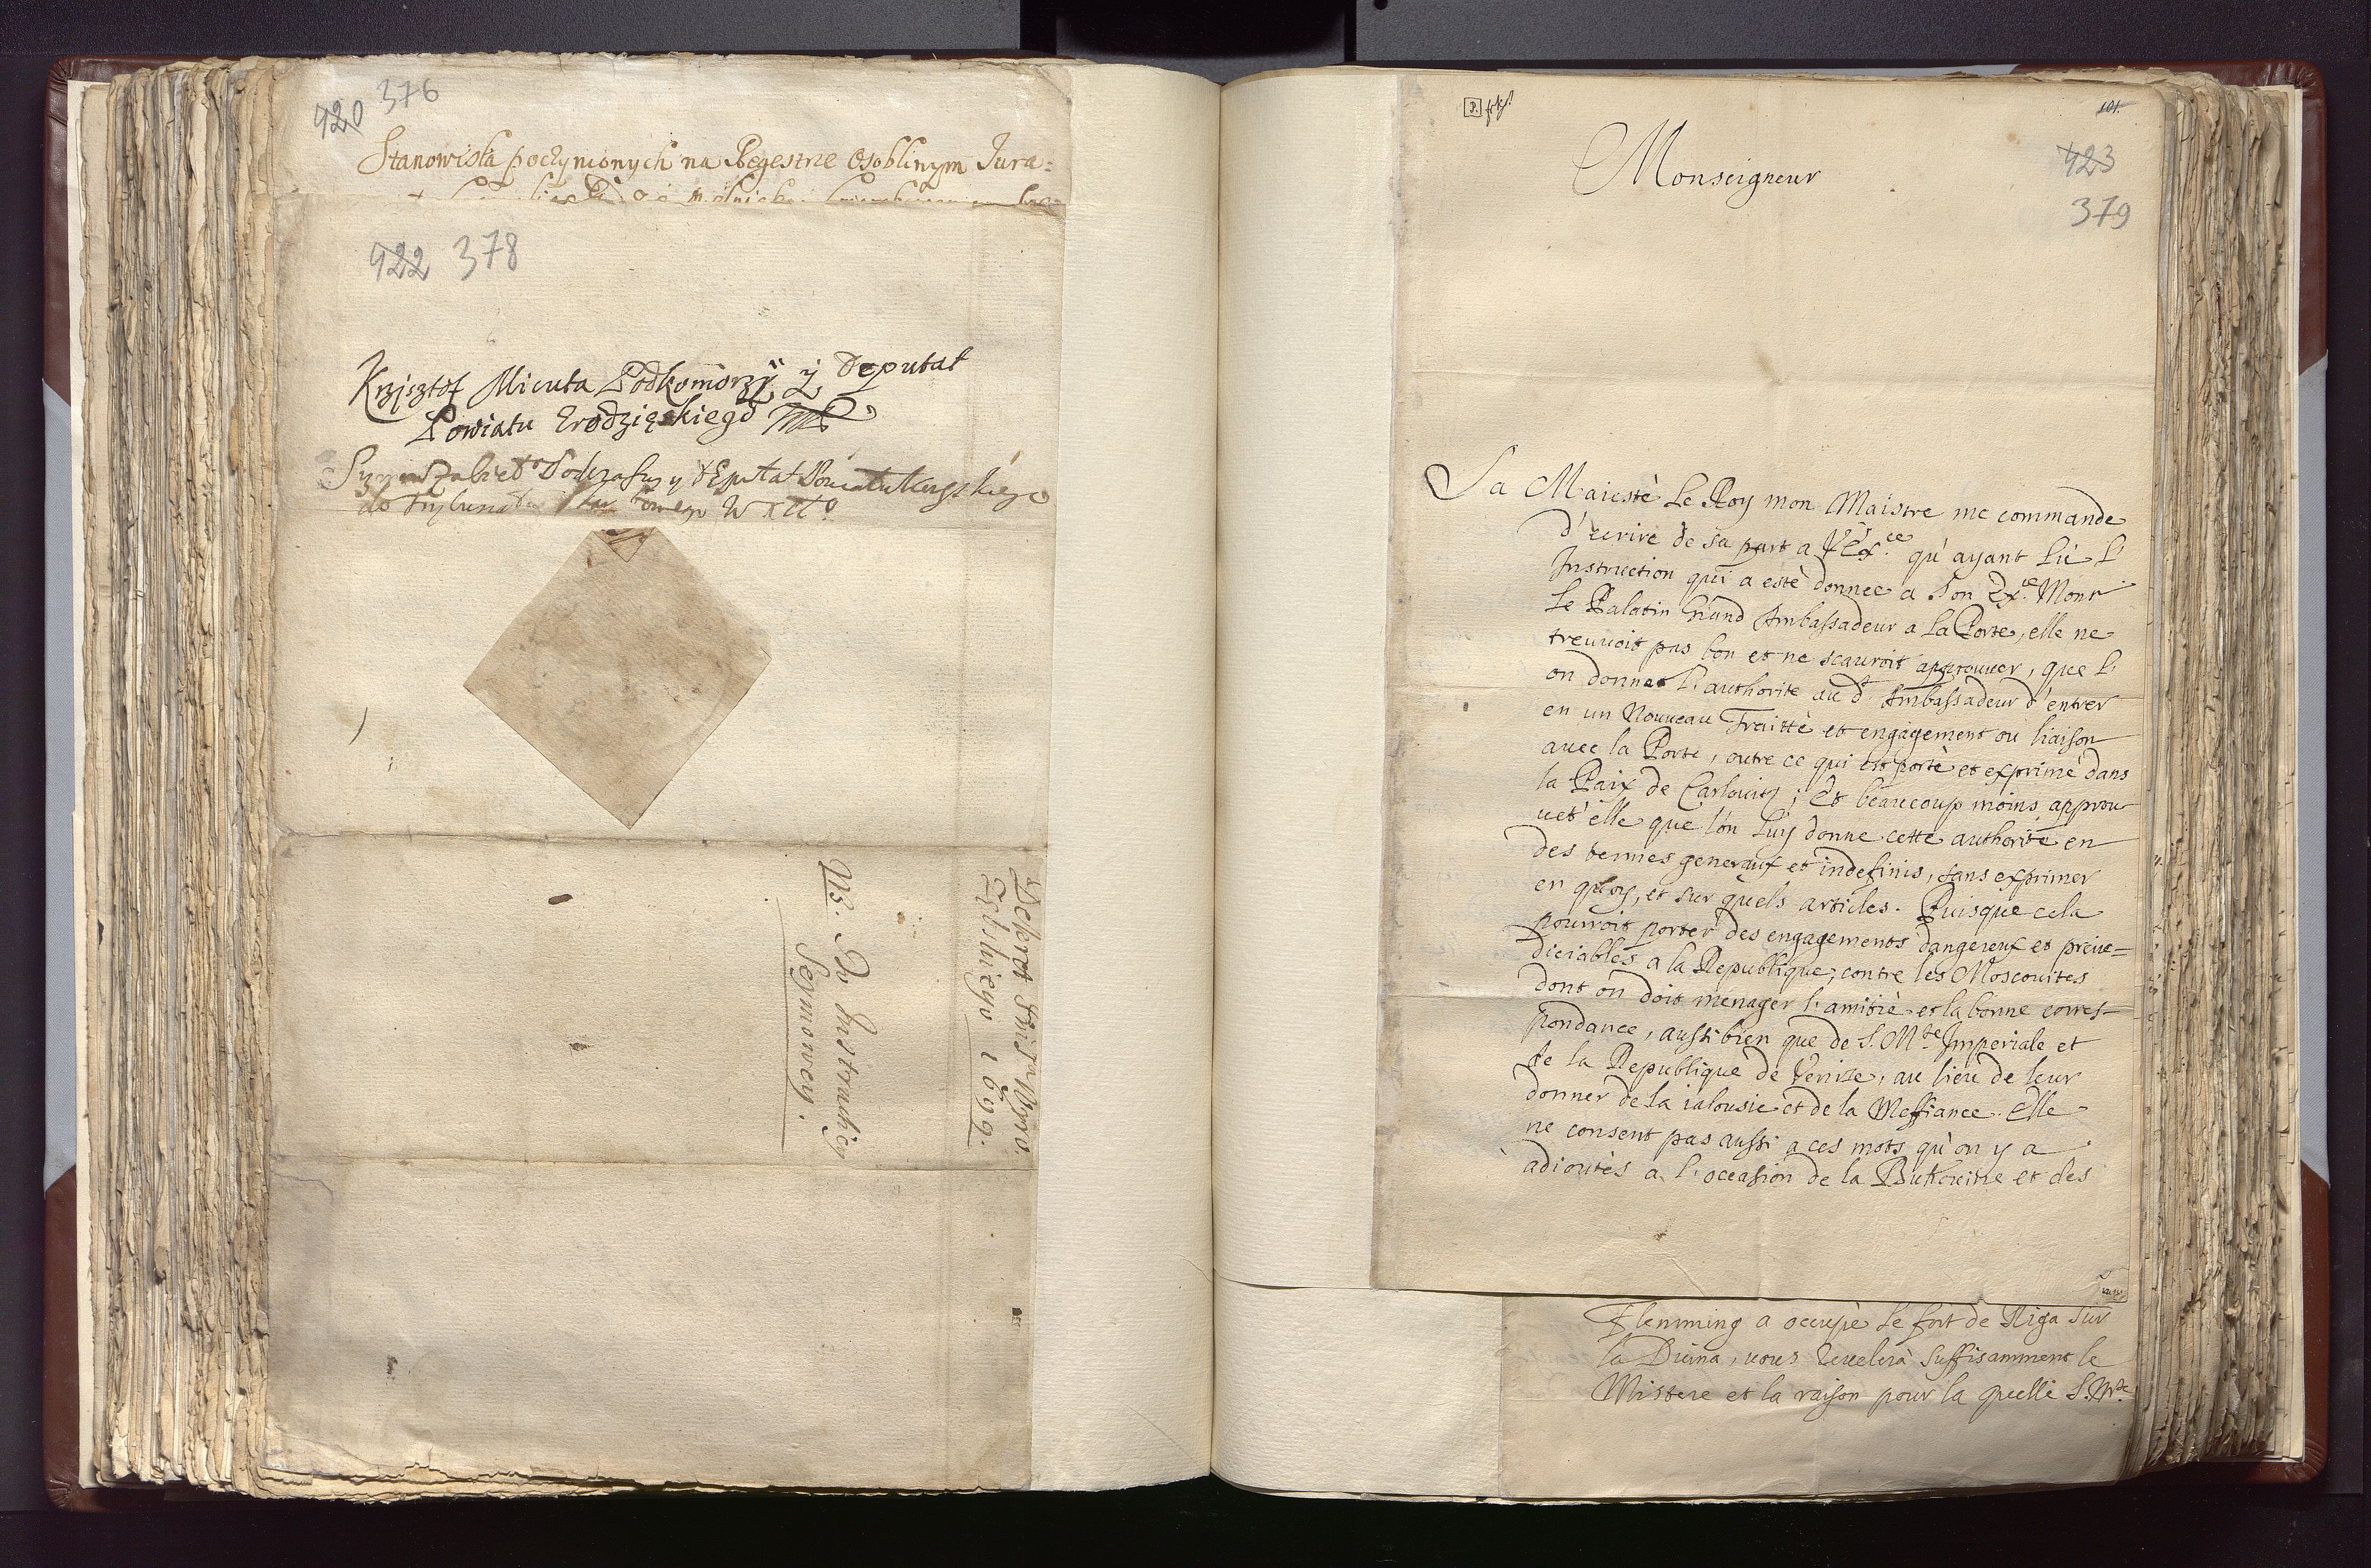 420 376
Stanowiska poczynionych na Regestrze Osobliwym Jura=
422 378
Krzysztof Micuta Podkomorzy y Deputat
Powiatu Grodzięskiego
Podczaszy y Deputat Powiatu
do Trybunału Skarbowego W X Lttº
Dekret
1699.
NB. Do Instrukciey
Seymowey.
101.
423
379
Monseigneur
Sa Maiestè Le Roy mon Maistre me commande
d'ecrire de sa part a V. Exce qu'ayant Lü L'
Instruction qui a estè donnee a Son Exce Monr
Le Palatin Grand Ambassadeur a La Porte, elle ne
treuuoit pas bon et ne scauroit approuuer, que L'
on donnat L'authorite au dt Ambassadeur d'entrer
en un Nouueau Traittè et engagement ou liaison
auec la Porte, outre ce qui est portè et exprimè dans
la Paix de Carlouitz; Et beaucoup moins approu
uet'elle que l'on Luy donne cette authoritè en
des termes generaux et indefinis, sans exprimer
en quoy, et sur quels articles. Puisque cela
pourroit porter des engagements dangereux et preiu=
diciables a la Republique, contre les Moscouites
dont on doit menager l'amitiè et la bonne corres-
pondance, aussi bien que de S. Mte Imperiale et
de la Republique de Venize, au lieu de leur
donner de la ialousie et de la Meffiance. Elle
ne consent pas aussi a ces mots qu'on y a
adioutès a l'occasion de la Bukouine et des
Flemming a occupè le fort de Riga sur
la Duina, vous reuelera suffisamment le
Mistere et la raison pour la quelle S. Mte